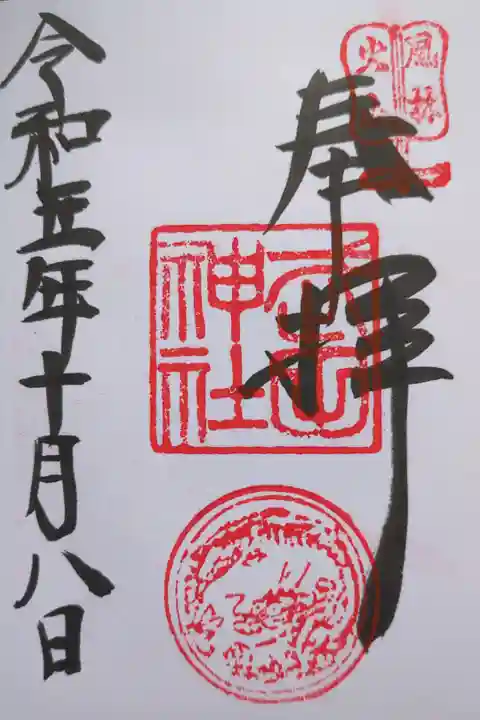 奉拝
風林
火
神社
令和五年十月八日